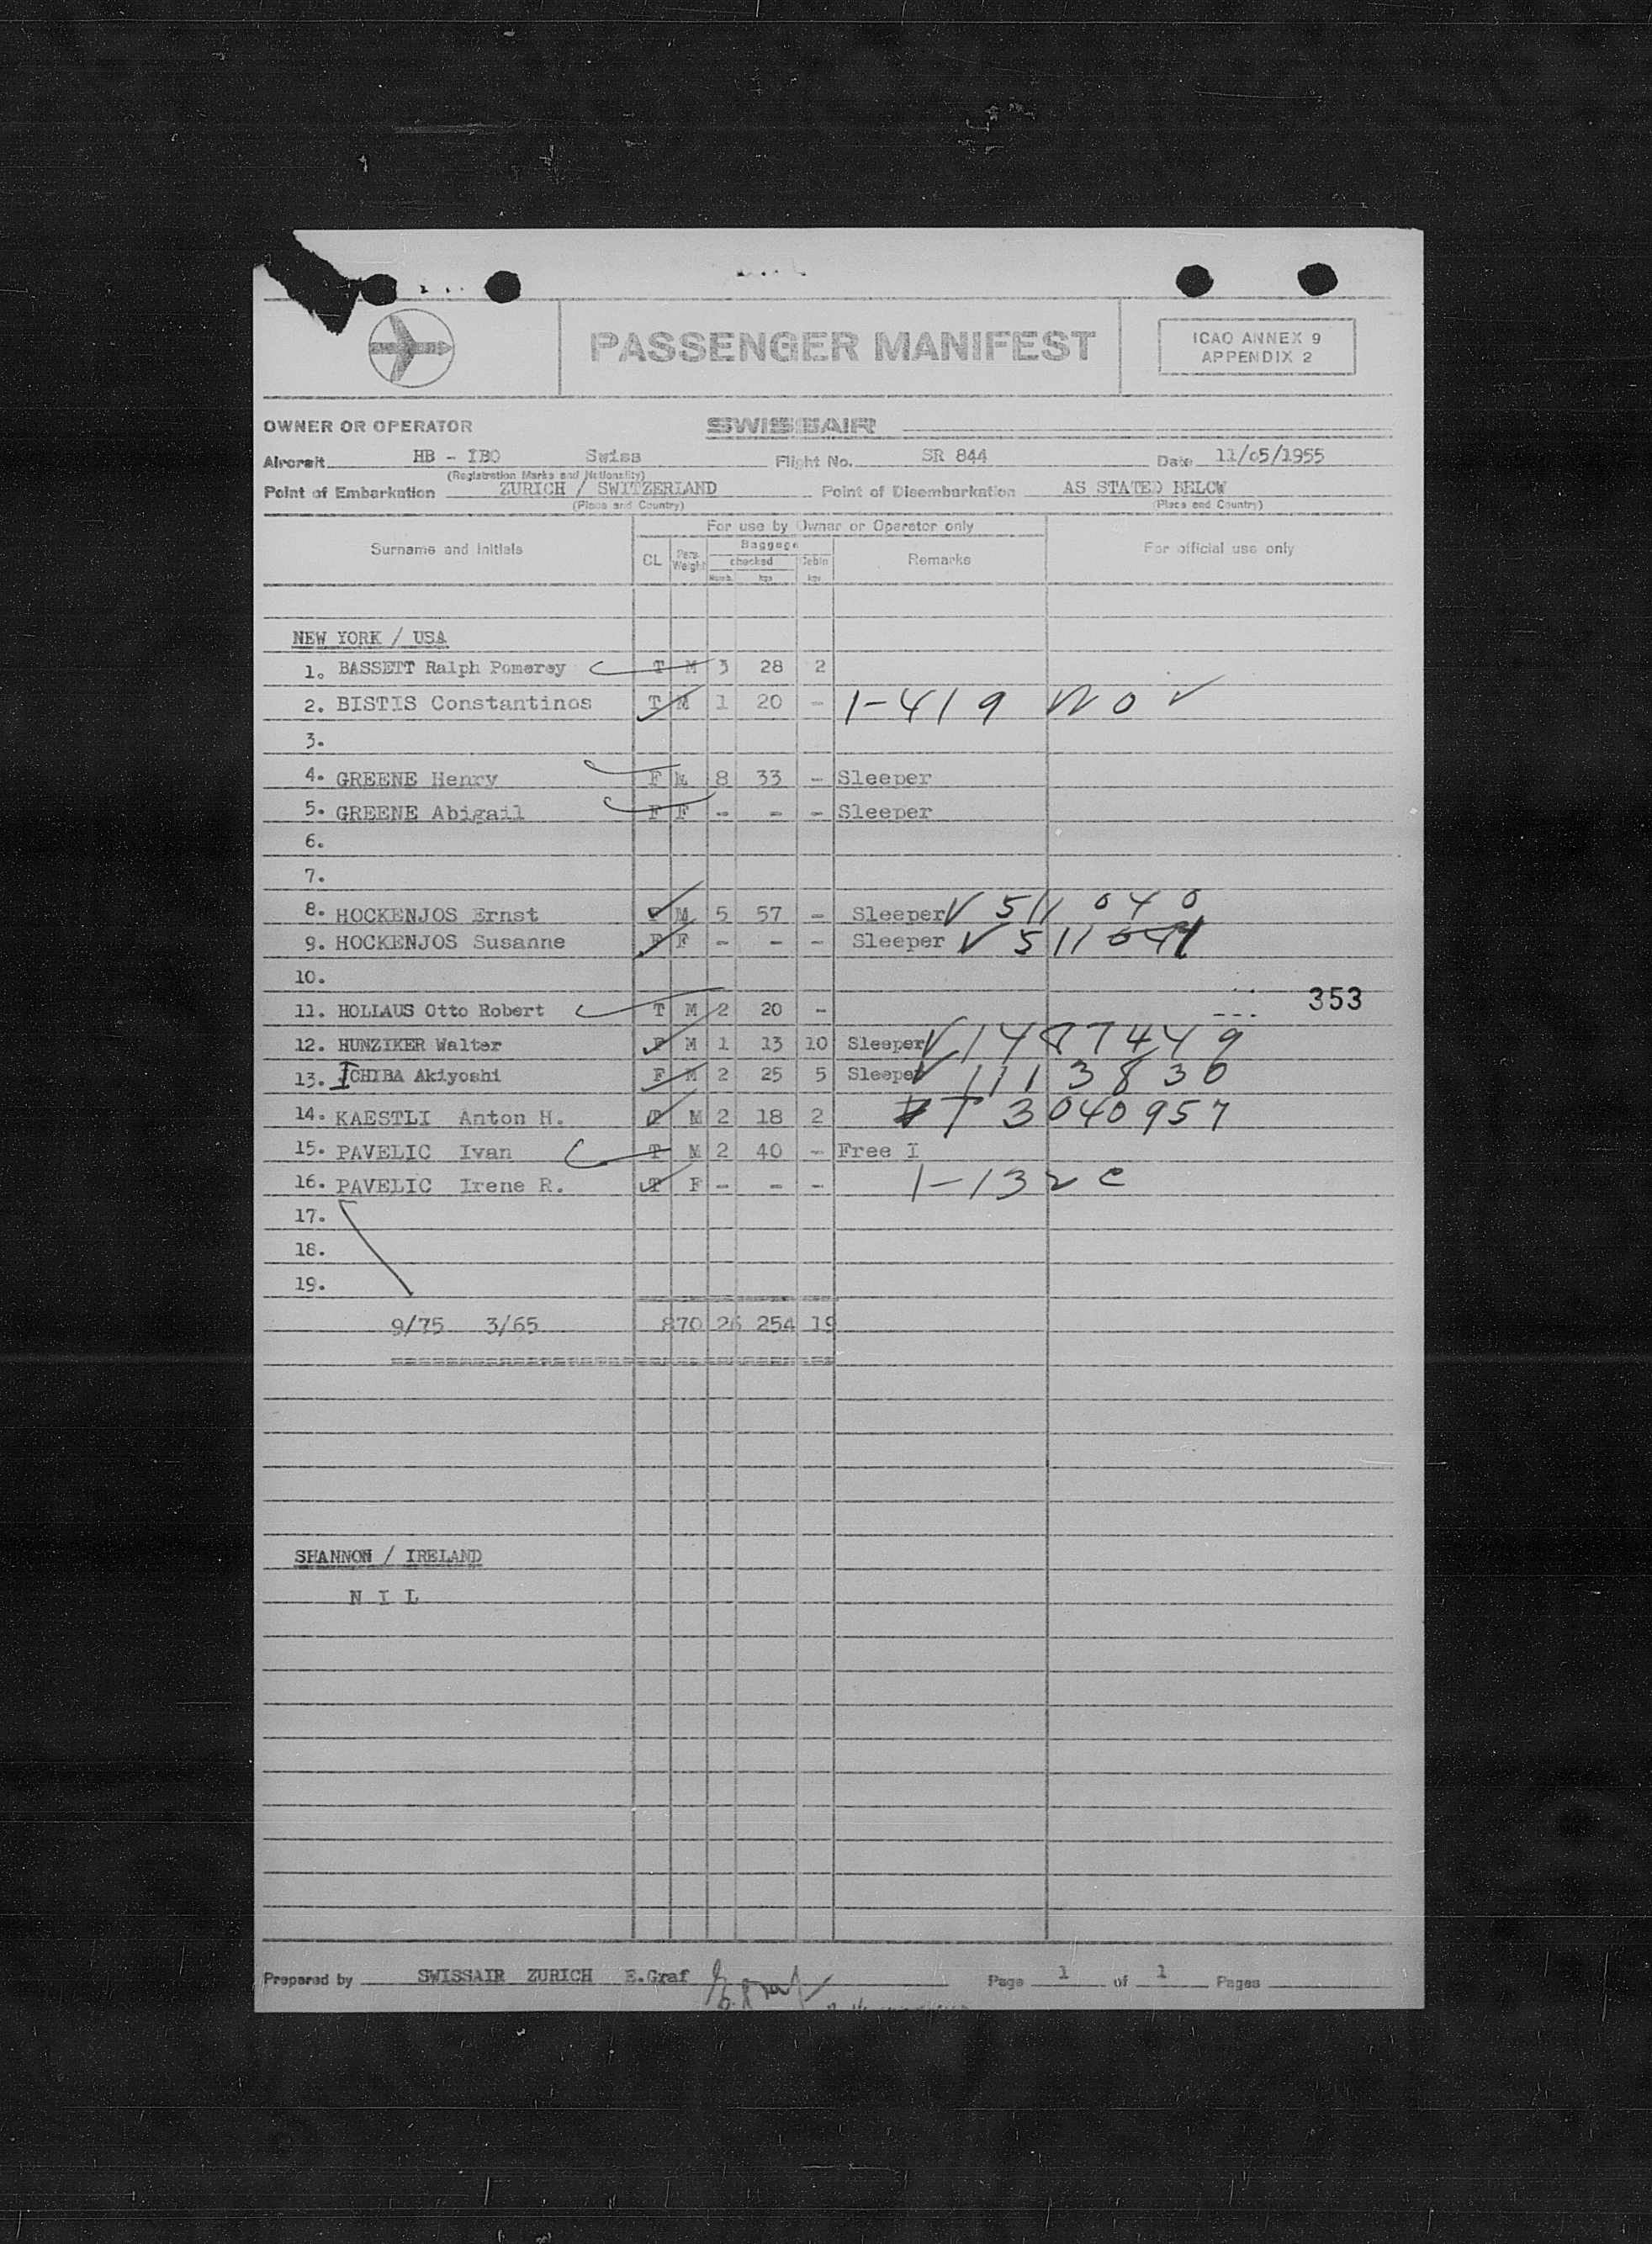 PASSENGER MANIFEST
ICAO ANNEX 9
APPENDIX 2
OWNER OR OPERATOR SWISSAIR
Aircraft HB - IBO Swiss Flight No. SR 844 Date 11/05/1955
(Registration Marks and Nationality)
Point of Embarkation ZURICH / SWITZERLAND Point of Disembarkation AS STATED BELOW
(Place and Country) (Place and Country)
For use by Owner or Operator only
Surname and Initials CL Pers. Weight Baggage checked Cabin Remarks For official use only
Numb. kgs kgs
NEW YORK / USA
1. BASSETT Ralph Pomerey T M 3 28 2
2. BISTIS Constantinos T M 1 20 - 1-419 NOV
3.
4. GREENE Henry F M 8 33 - Sleeper
5. GREENE Abigail F F - - - Sleeper
6.
7.
8. HOCKENJOS Ernst F M 5 57 - Sleeper V 511 040
9. HOCKENJOS Susanne F F - - - Sleeper V 511 041
10.
353
11. HOLLAUS Otto Robert T M 2 20 -
12. HUNZIKER Walter F M 1 13 10 Sleeper V 1487449
13. ICHIBA Akiyoshi F M 2 25 5 Sleeper V 1113830
14. KAESTLI Anton H. T M 2 18 2 T 3040957
15. PAVELIC Ivan T M 2 40 - Free I
16. PAVELIC Irene R. T F - - - 1-132 C
17.
18.
19.
9/75 3/65 870 26 254 19
SHANNON / IRELAND
N I L
Prepared by SWISSAIR ZURICH E.Graf E. Graf Page 1 of 1 Pages